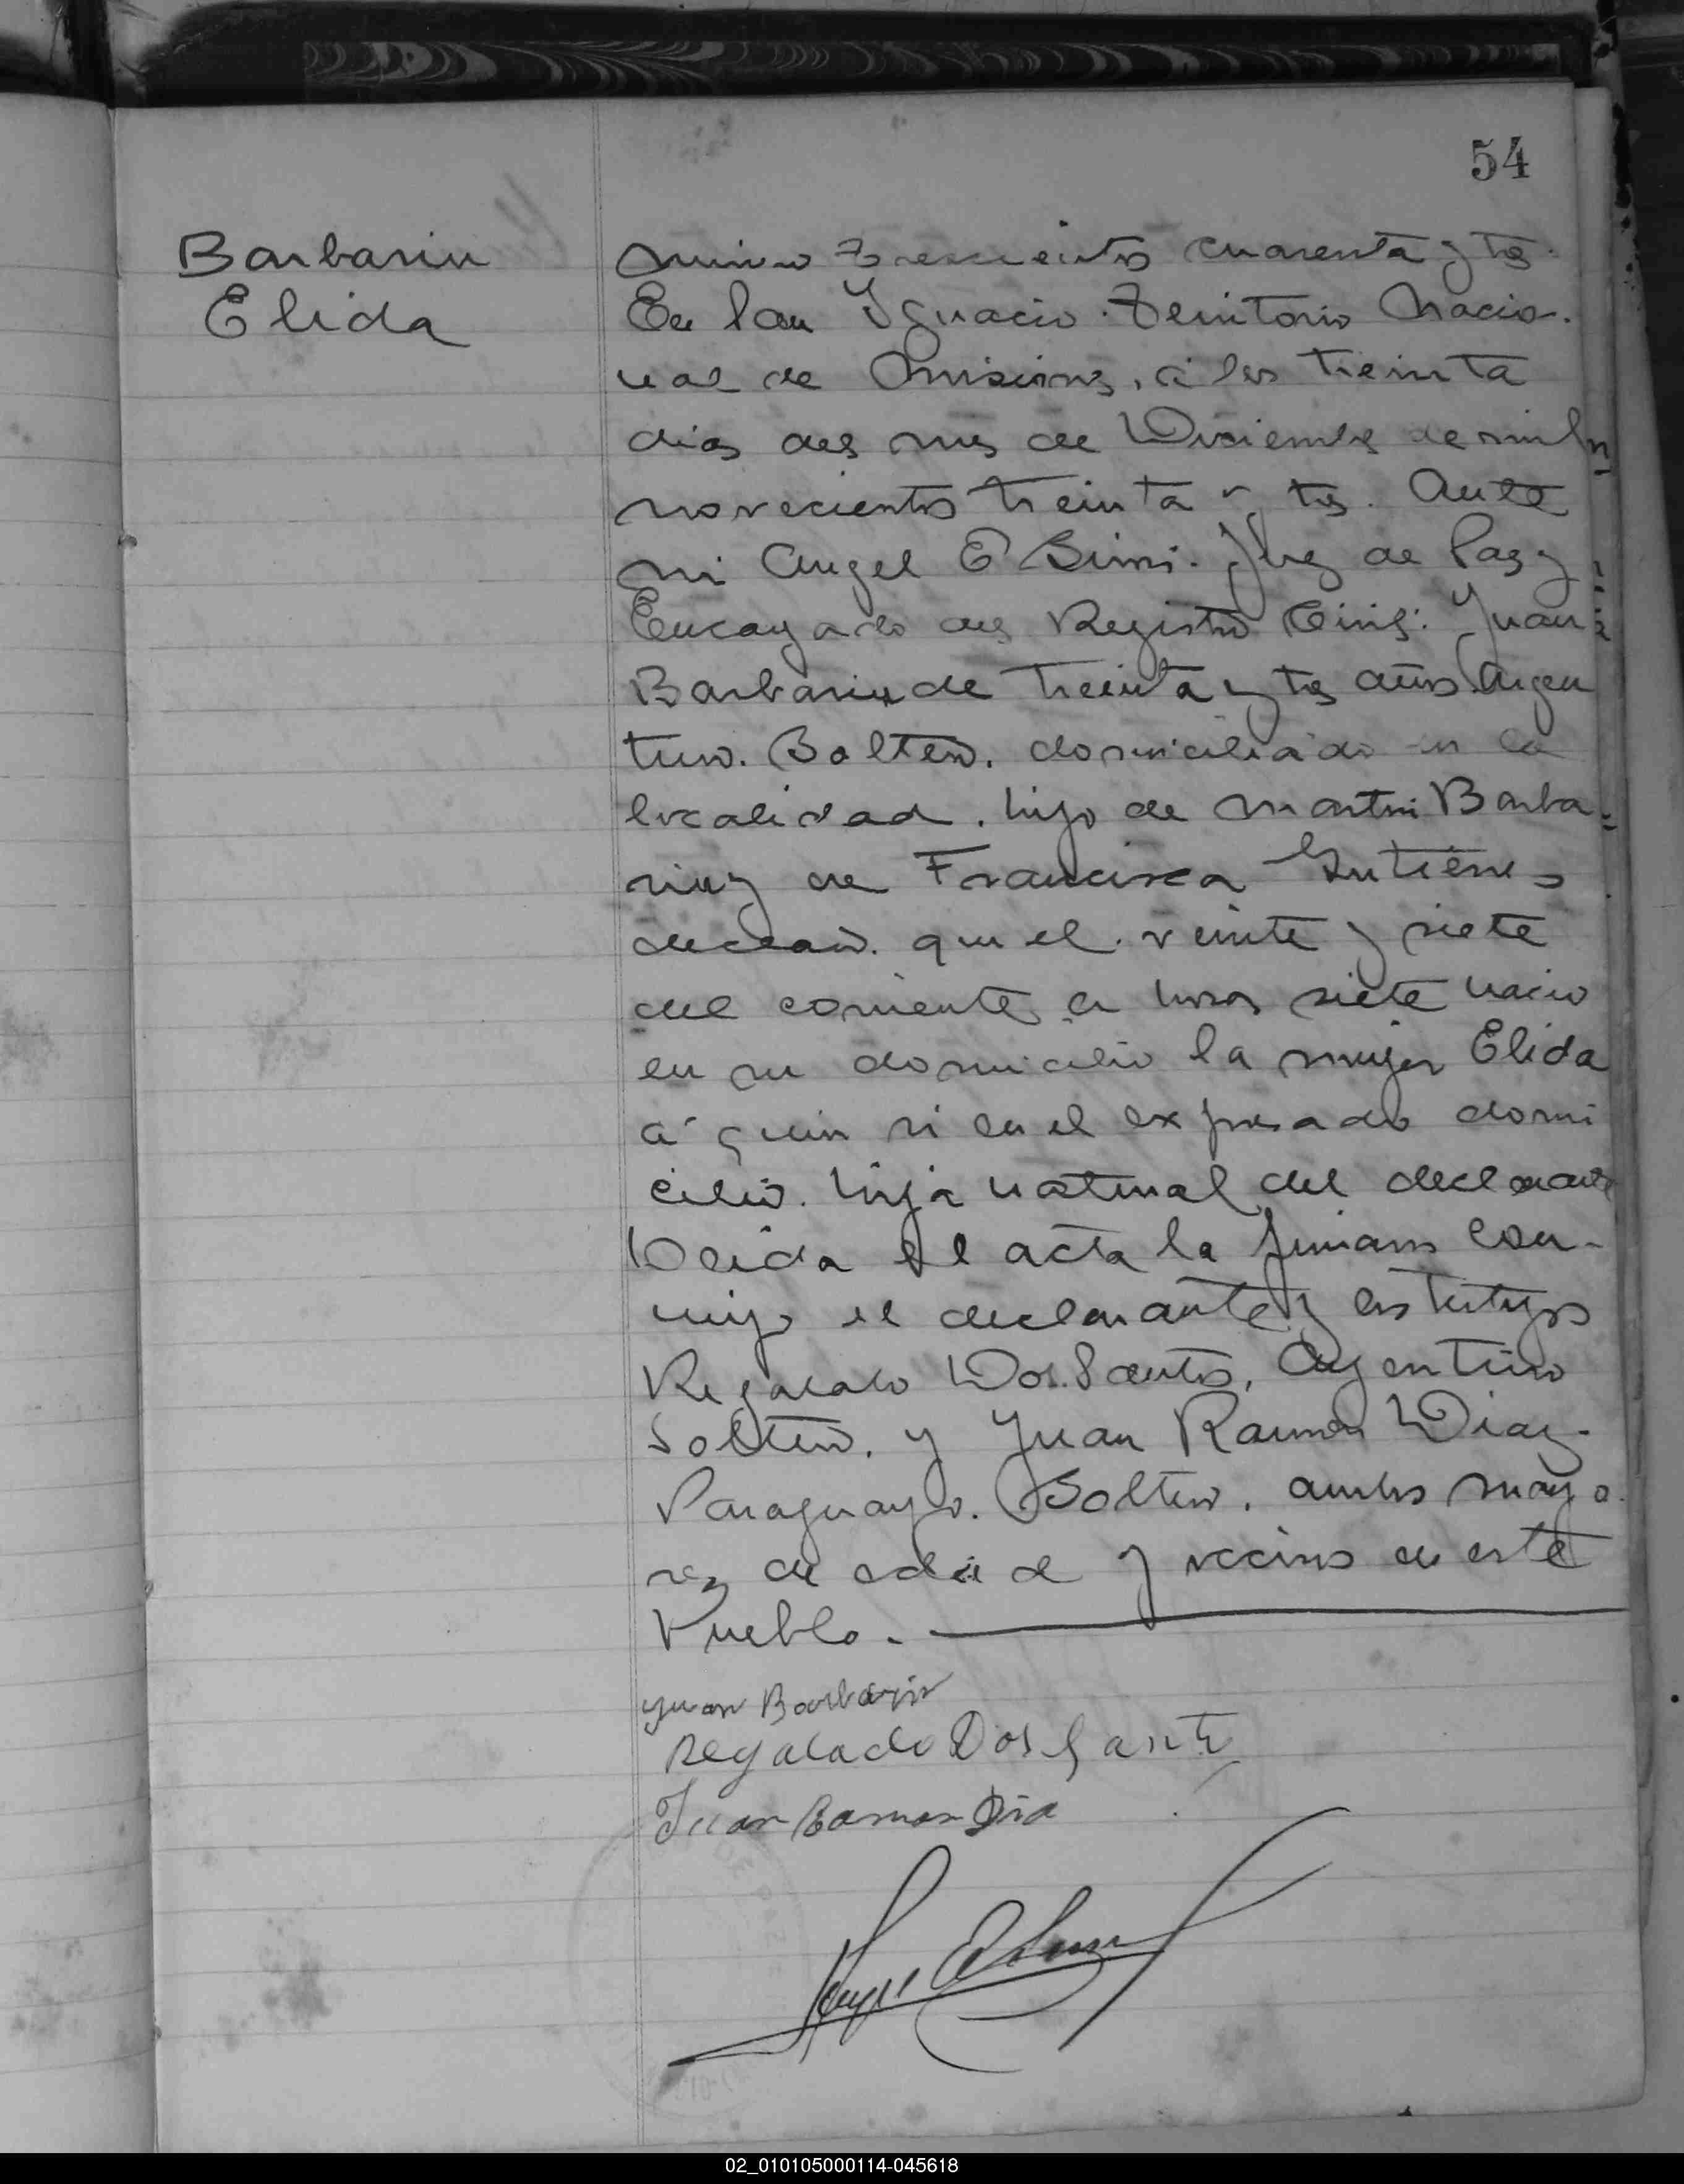 54
Barbarin
Elida
Numero Trescientos cuarenta y tres.
En San Ygnacio. Territorio Nacio-
nal de Misiones, á los treinta
dias del mes de Diciembre de mil
novecientos treinta y tres. Ante
mi Angel E Bimi. Juez de Paz y
Encargado del Registro Civil: Juan
Barbarin de treinta y tres años Argen
tino. Soltero. domiciliado en la
localidad. hijo de Martin Barba-
rin y de Francisca Gutierres
declaró. que el veinte y siete
del corriente á horas siete nacio
en su domicilio la mujer Elida
á quien vi en el expresado domi
cilio. hija natural del declarante
Leida el acta la firmaron con-
migo el declarante y los testigos
Regalado Dos Santos, Argentino
Soltero. y Juan Ramon Diaz.
Paraguayo. Soltero. ambos mayo
res de edad y vecinos de este
Pueblo.
Juan Barbarin
Regalado Dos Sante
Juan Ramon Dia
02_010105000114-045618